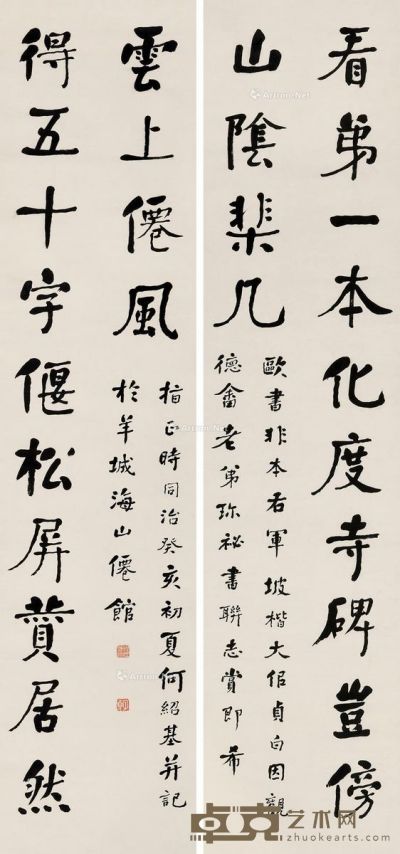 看第一本化度寺碑豈傍
山陰棐几
歐書非本右軍坡楷大佀貞白因觀
德畬老弟珎祕書聯志賞即希
得五十字偃松屏贊居然
雲上僊風
指正時同治癸亥初夏何紹基并記
於羊城海山僊館
卓克艺术网
www.zhuokearts.com